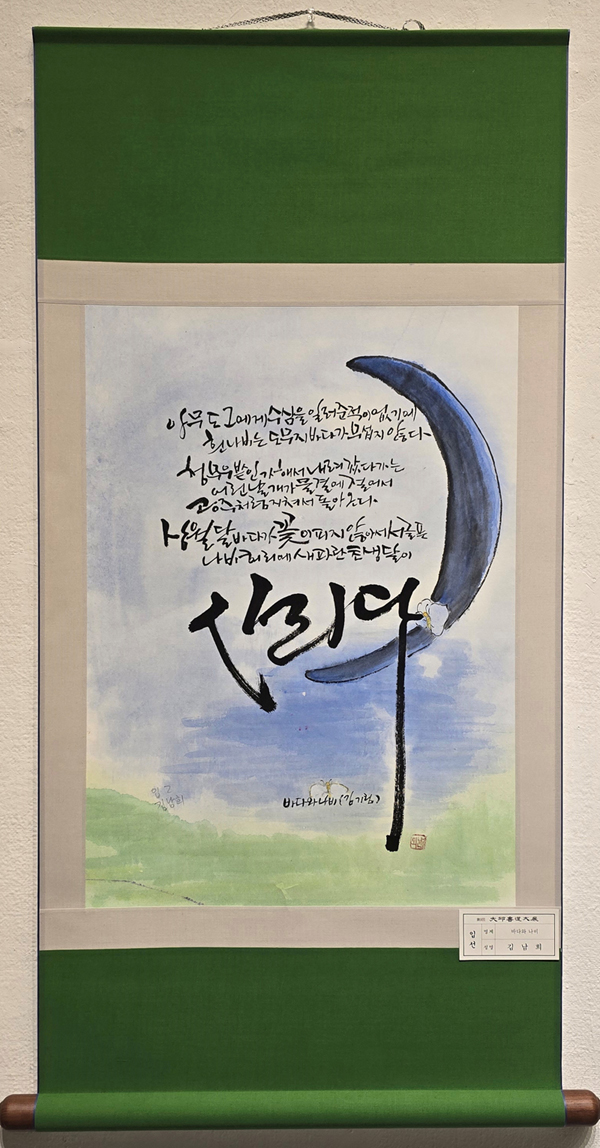 아무도 그에게 수심을 일러준 적이 없기에
흰나비는 도무지 바다가 무섭지 않다
청무우밭인가 해서 내려갔다가는
어린 날개가 물결에 절어서
공주처럼 지쳐서 돌아온다.
삼월달 바다가 꽃이 피지 않아서 서글픈
나비 허리에 새파란 초생달이
시리다
바다와 나비(김기림)
김남희
大邱書道大展
입선
명제 바다와 나비
성명 김남희